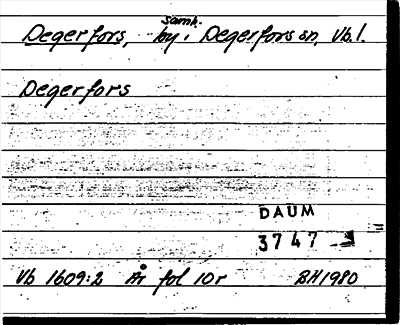 Degerfors, samh. by i Degerfors sn, Vb.l.
Degerfors
DAUM
3747
Vb 1609:2 År fol 10r BH1980